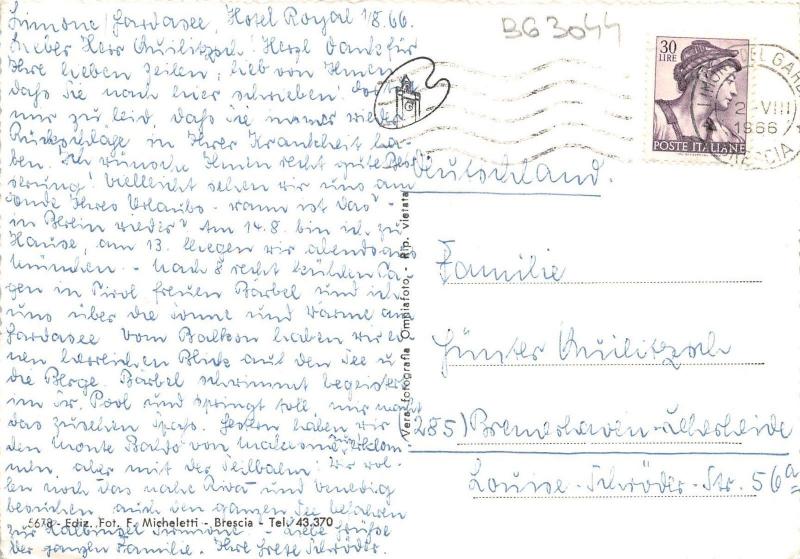 Limone/Gardasee, Hotel Royal 1/8.66.
Lieber Herr Quilitzsch! Herzl. Dank für
Ihre lieben Zeilen, lieb von Ihnen,
daß Sie nach hier schrieben! Es tut
mir so leid, daß Sie immer wieder
Rückschläge in Ihrer Krankheit ha-
ben. Ich wünsche Ihnen recht gute Bes-
serung! Vielleicht sehen wir uns am
Ende Ihres Urlaubs - wann ist das -
in Berlin wieder? Am 14.8. bin ich zu
Hause, am 13. fliegen wir abends ab
München. - Nach 8 recht kühlen Ta-
gen in Tirol freuen Bärbel und ich
uns über die Sonne und Wärme am
Gardasee. Vom Balkon haben wir ei-
nen herrlichen Blick auf den See u.
die Berge. Bärbel schwimmt begeistert
im Pool und springt toll, nur
das zusehen Spaß. Gestern haben wir
den Monte Baldo von Malcesine erklom-
men, aber mit der Seilbahn! Wir wol-
len noch das nahe Riva und Venedig
besuchen, auch den ganzen See befahren
Limone - Liebe Grüße
der ganzen Familie. Ihre Grete Schröder.
5678 - Ediz. Fot. F. Micheletti - Brescia - Tel. 43.370
Vera fotografia Omniafoto - Rip. vietata
BG3044
30
LIRE
POSTE ITALIANE
LIMONE DEL GARDA
2-VIII
1966
BRESCIA
Deutschland.
Familie
Günter Quilitzsch
285) Bremerhaven-
Louise-Schröder-Str. 56a